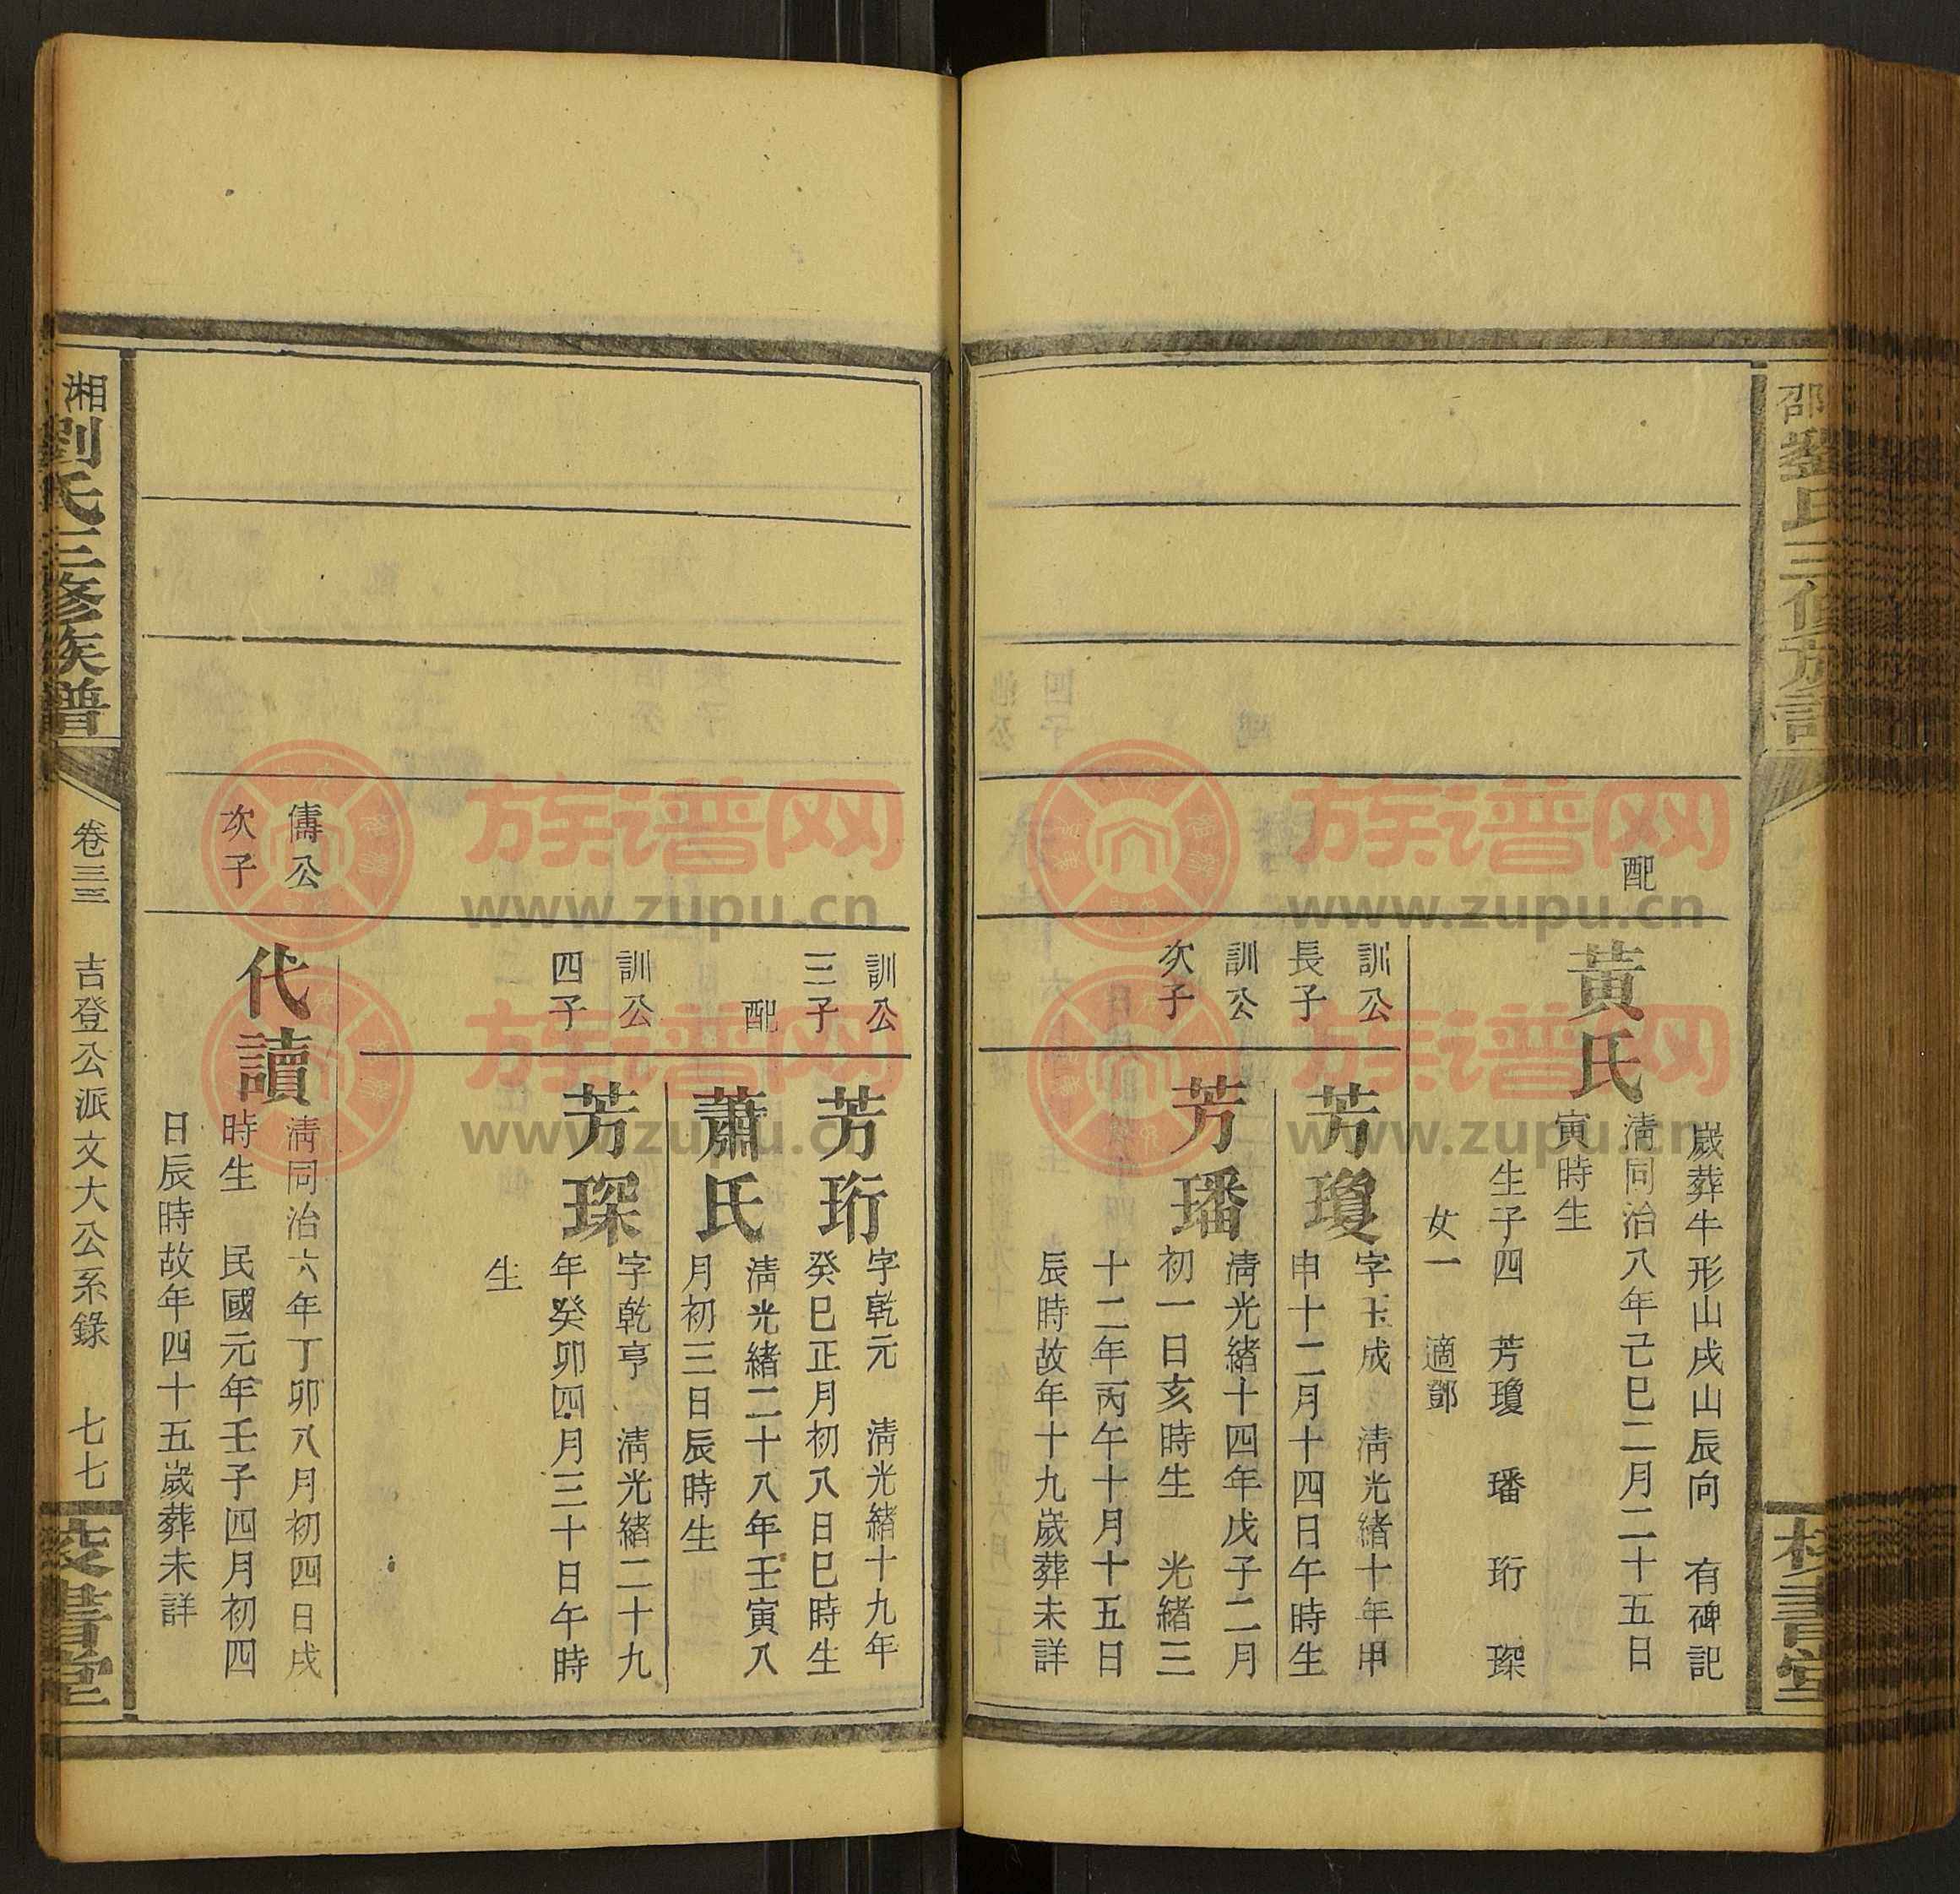 邵劉氏三修族譜
校書堂
歲葬牛形山戌山辰向 有碑記
配 黃氏 清同治八年己巳二月二十五日
寅時生
生子四 芳瓊 璠 珩 琛
女一 適鄧
訓公
長子
芳瓊 字玉成 清光緒十年甲
申十二月十四日午時生
訓公
次子
芳璠 清光緒十四年戊子二月
初一日亥時生 光緒三
十二年丙午十月十五日
辰時故年十九歲葬未詳
訓公
三子
芳珩 字乾元 清光緒十九年
癸巳正月初八日巳時生
配 蕭氏 清光緒二十八年壬寅八
月初三日辰時生
訓公
四子
芳琛 字乾亨 清光緒二十九
年癸卯四月三十日午時
生
儔公
次子
代讀 清同治六年丁卯八月初四日戌
時生 民國元年壬子四月初四
日辰時故年四十五歲葬未詳
湘劉氏三修族譜
卷三三 吉登公派文大公系錄 七七
校書堂
族谱网
www.zupu.cn
族谱网
www.zupu.cn
族谱网
www.zupu.cn
族谱网
www.zupu.cn